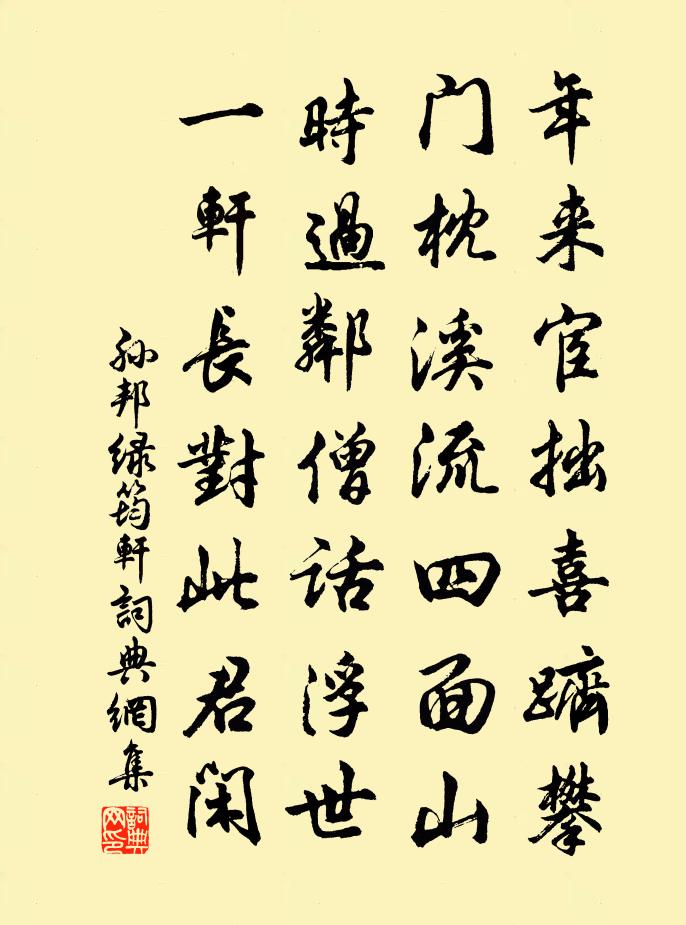 年来宦拙喜躋攀
门枕溪流四面山
時過鄰僧話浮世
一軒長對此君闲
孙邦绿筠軒詞典網集
詞典网印